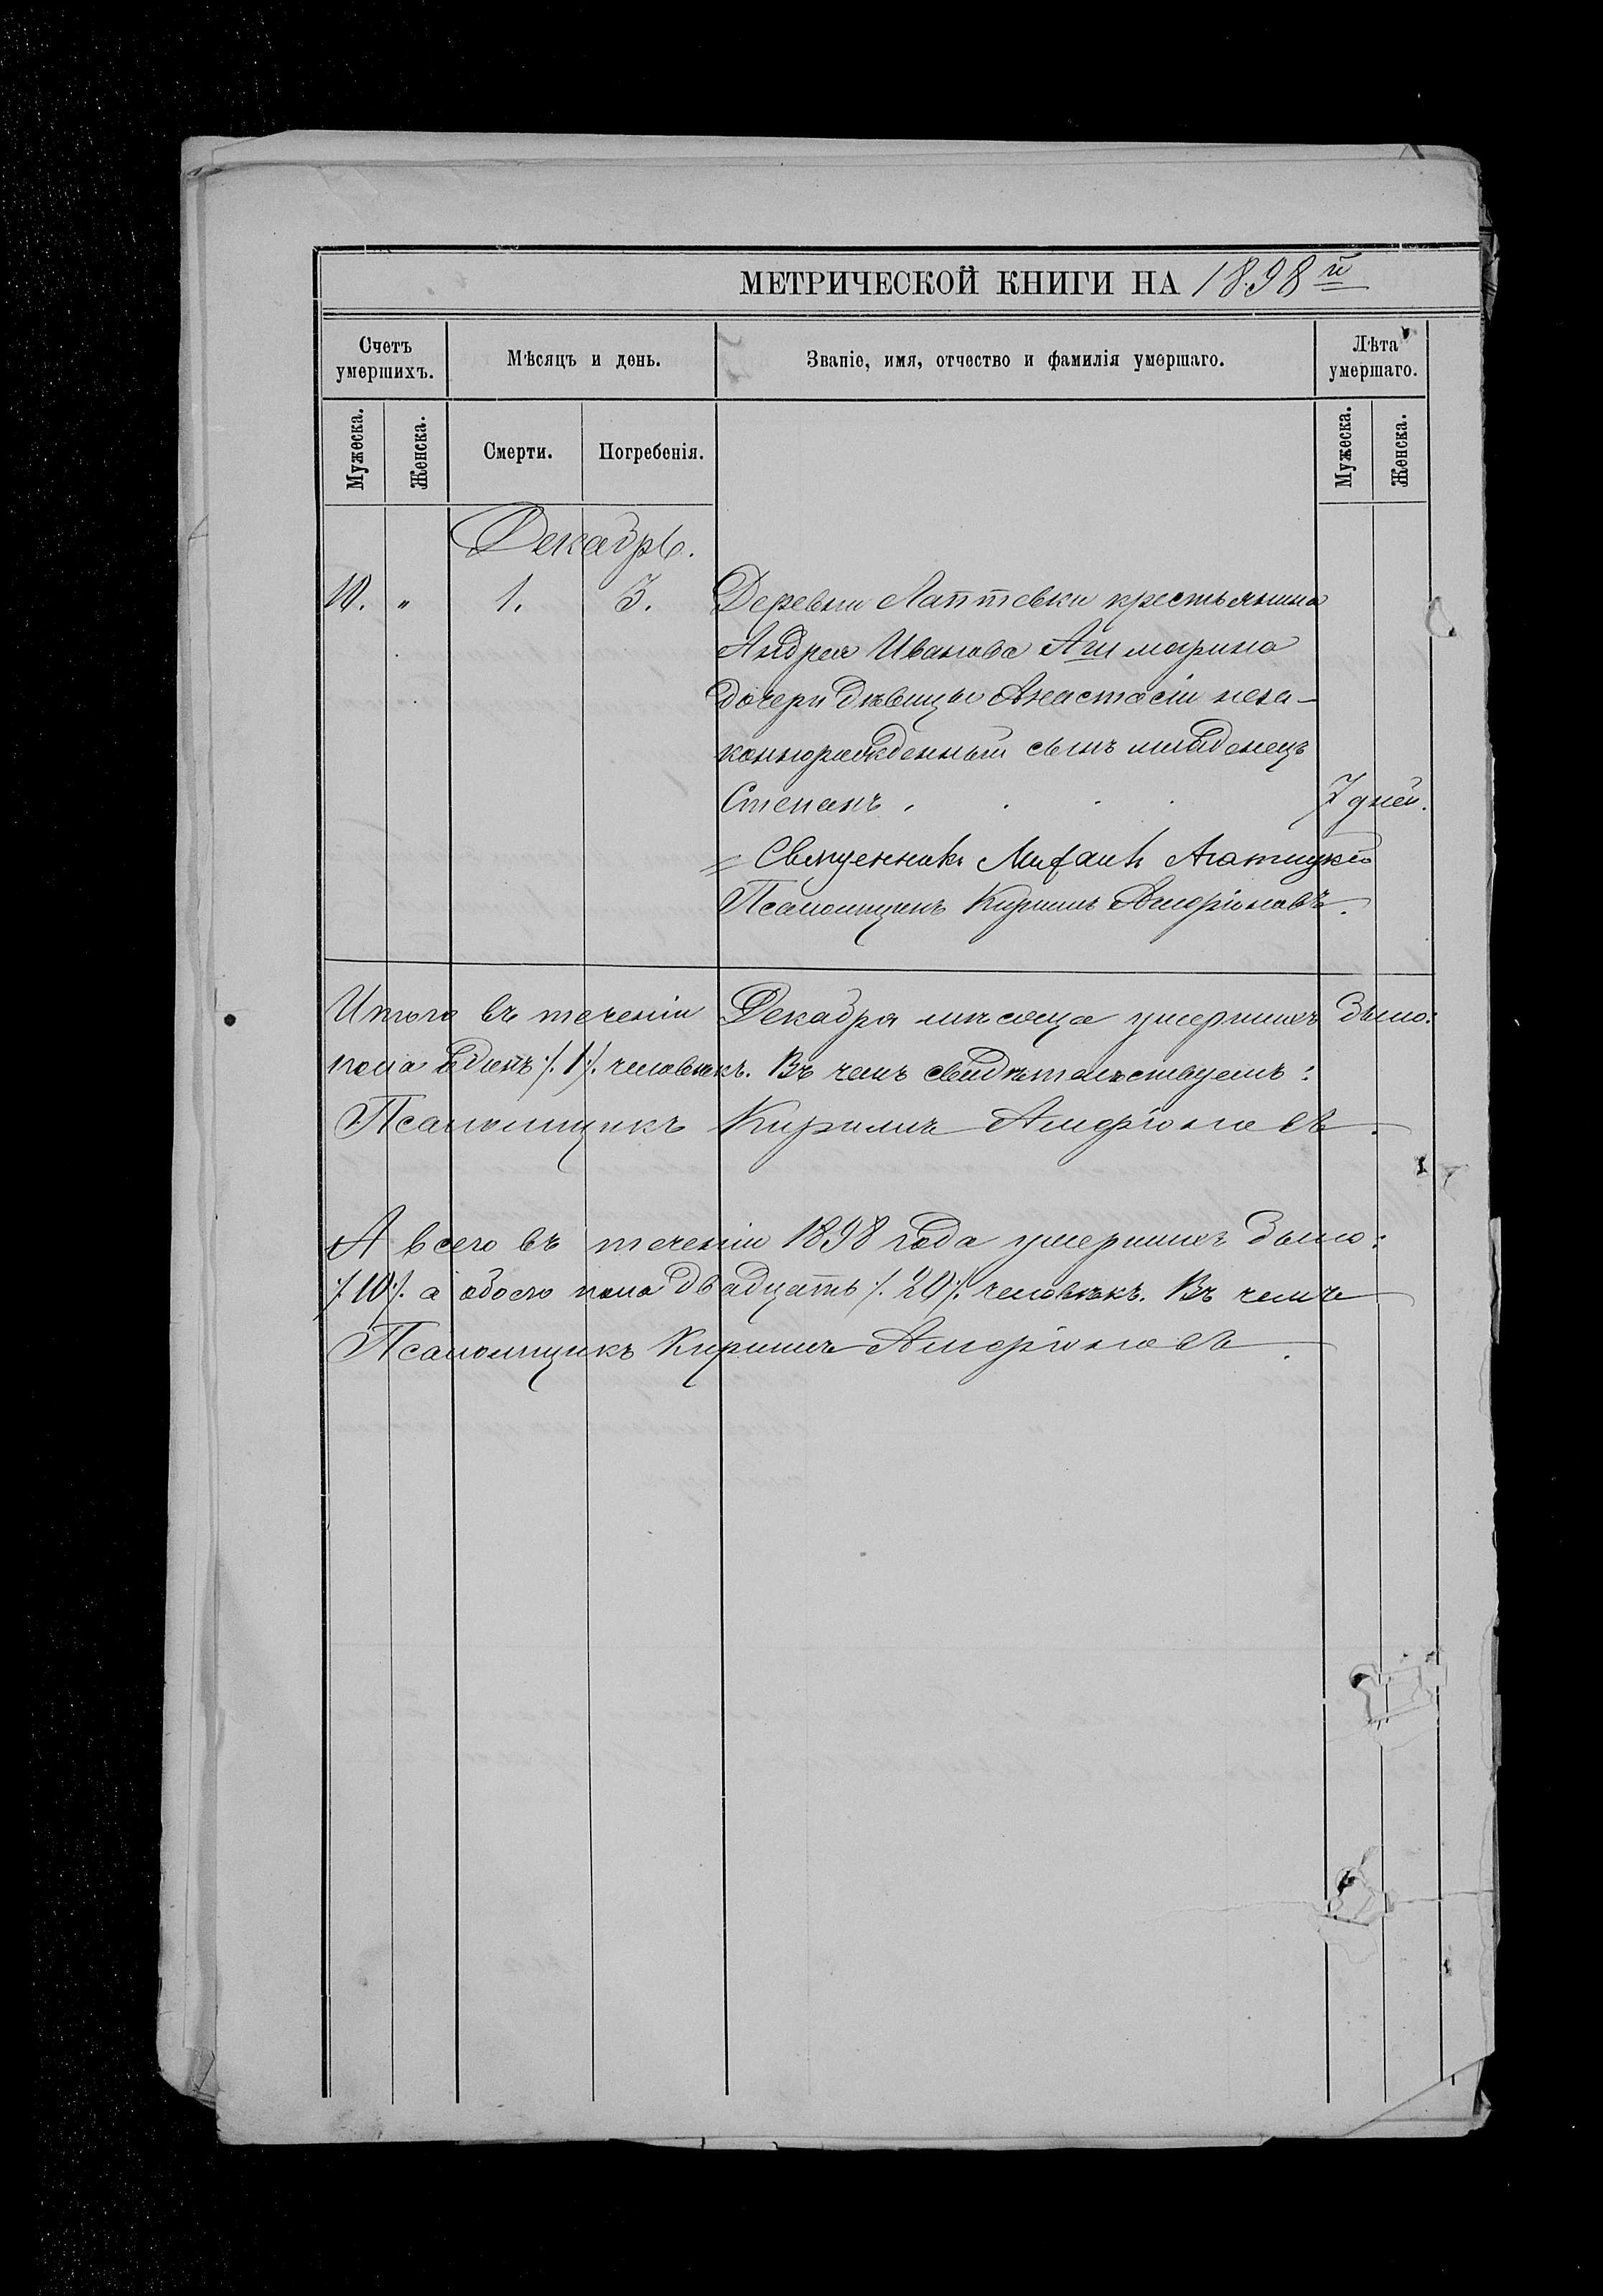 МЕТРИЧЕСКОЙ КНИГИ НА 1898й
Счетъ умершихъ.
Мѣсяцъ и день.
Званіе, имя, отчество и фамилія умершаго.
Лѣта умершаго.
Мужеска.
Женска.
Смерти.
Погребенія.
Мужеска.
Женска.
Декабрь.
10. " 1. 3. Деревни Лаптевки крестьянина
Андрея Иванова
дочери дѣвицы Анастасіи неза-
коннорожденный сынъ младенецъ
Степанъ . . . . 7 дней.
Священникъ Михаилъ
Псаломщикъ Кирилъ Амфріоновъ.
Итого въ теченіи Декабря мѣсяца умершихъ было:
пола Единъ /.1/. человѣкъ. Въ чемъ свидѣтельствуемъ:
Псаломщикъ Кирилъ Амфріоновъ.
А всего въ теченіи 1898 года умершихъ было:
/.10/. а обоего пола двадцать /.20/. человѣкъ. Въ чемъ
Псаломщикъ Кирилъ Амфріоновъ.